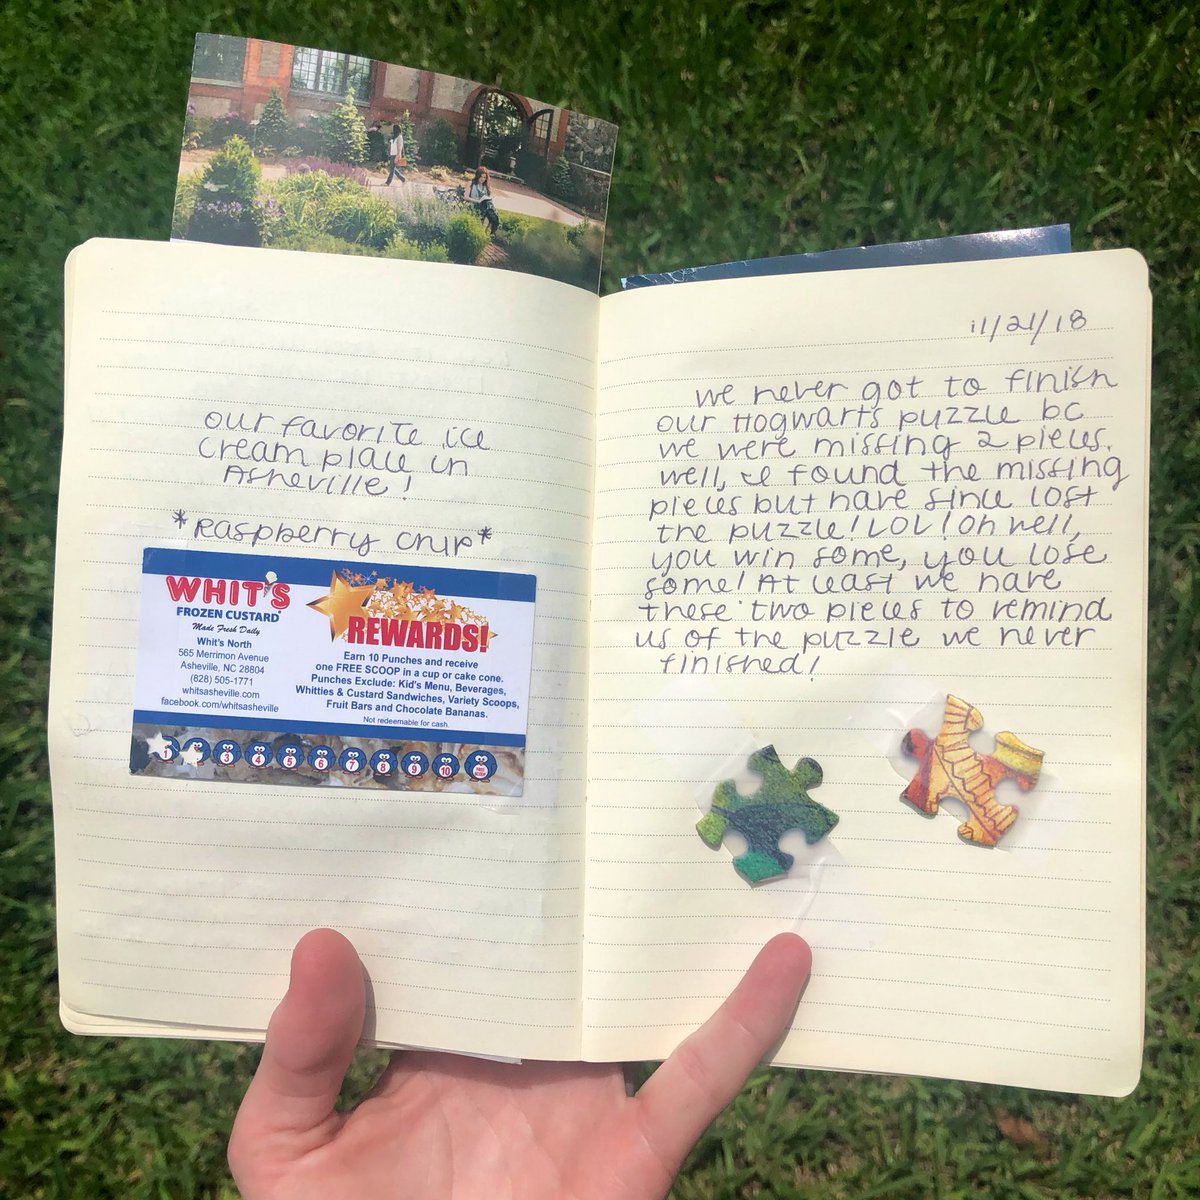 our favorite ice
cream place in
Asheville!
*Raspberry Chip*
WHIT'S
FROZEN CUSTARD
Made Fresh Daily
Whit's North
565 Merrimon Avenue
Asheville, NC 28804
(828) 505-1771
whitsasheville.com
facebook.com/whitsasheville
REWARDS!
Earn 10 Punches and receive
one FREE SCOOP in a cup or cake cone.
Punches Exclude: Kid's Menu, Beverages,
Whitties & Custard Sandwiches, Variety Scoops,
Fruit Bars and Chocolate Bananas.
Not redeemable for cash.
1 3 4 5 6 7 8 9 10
11/21/18
we never got to finish
our Hogwarts puzzle bc
we were missing 2 pieces.
well, I found the missing
pieces but have since lost
the puzzle! LOL! Oh well,
you win some, you lose
some! At least we have
these two pieces to remind
us of the puzzle we never
finished!